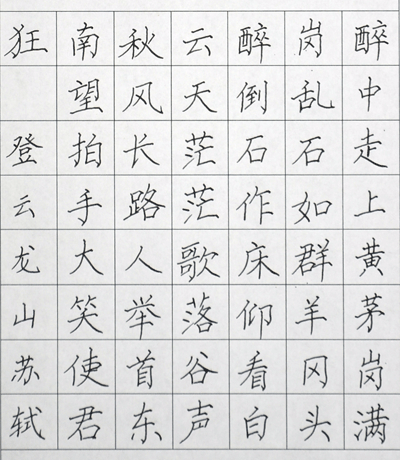 醉中走上黄茅岗满
岗乱石如群羊冈头
醉倒石作床仰看白
云天茫茫歌落谷声
秋风长路人举首东
南望拍手大笑使君
狂 登云龙山苏轼